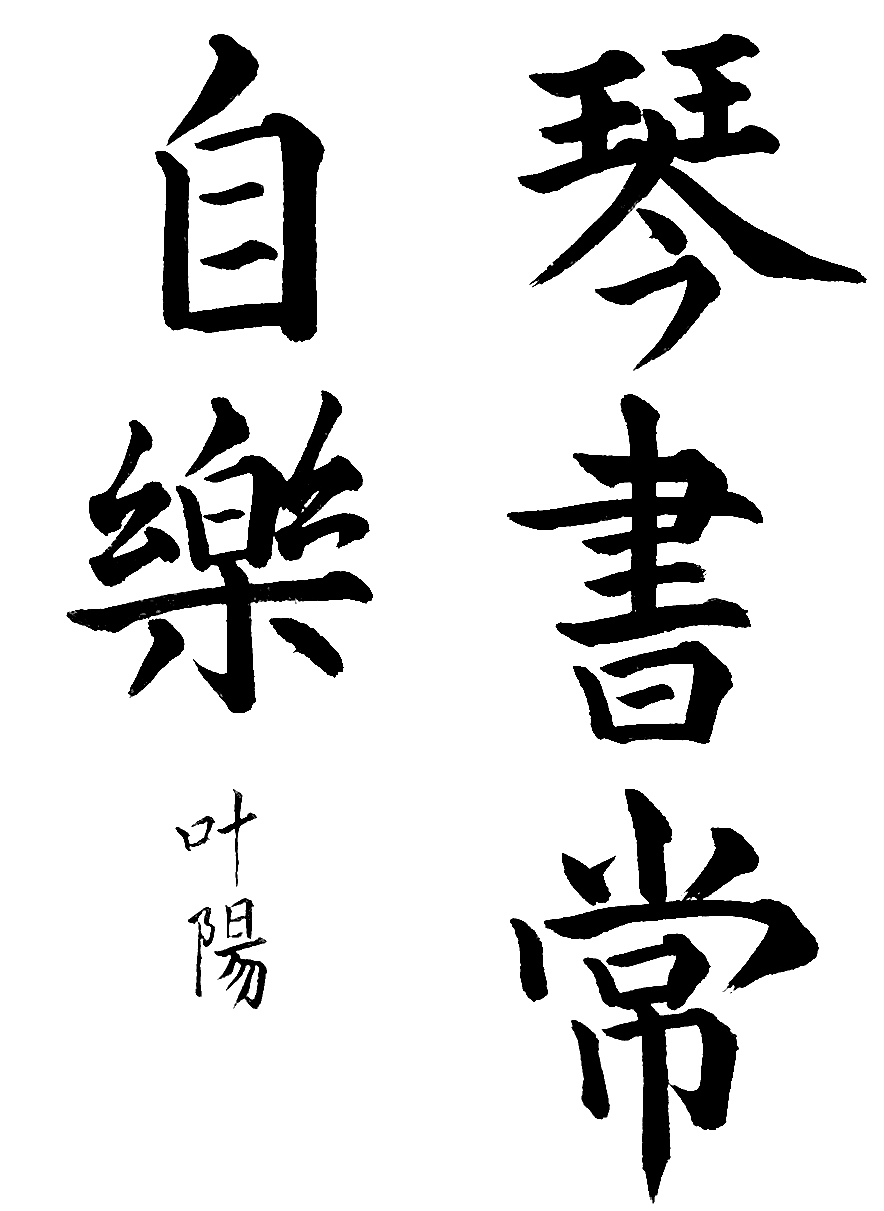 琴書常
自樂
叶陽